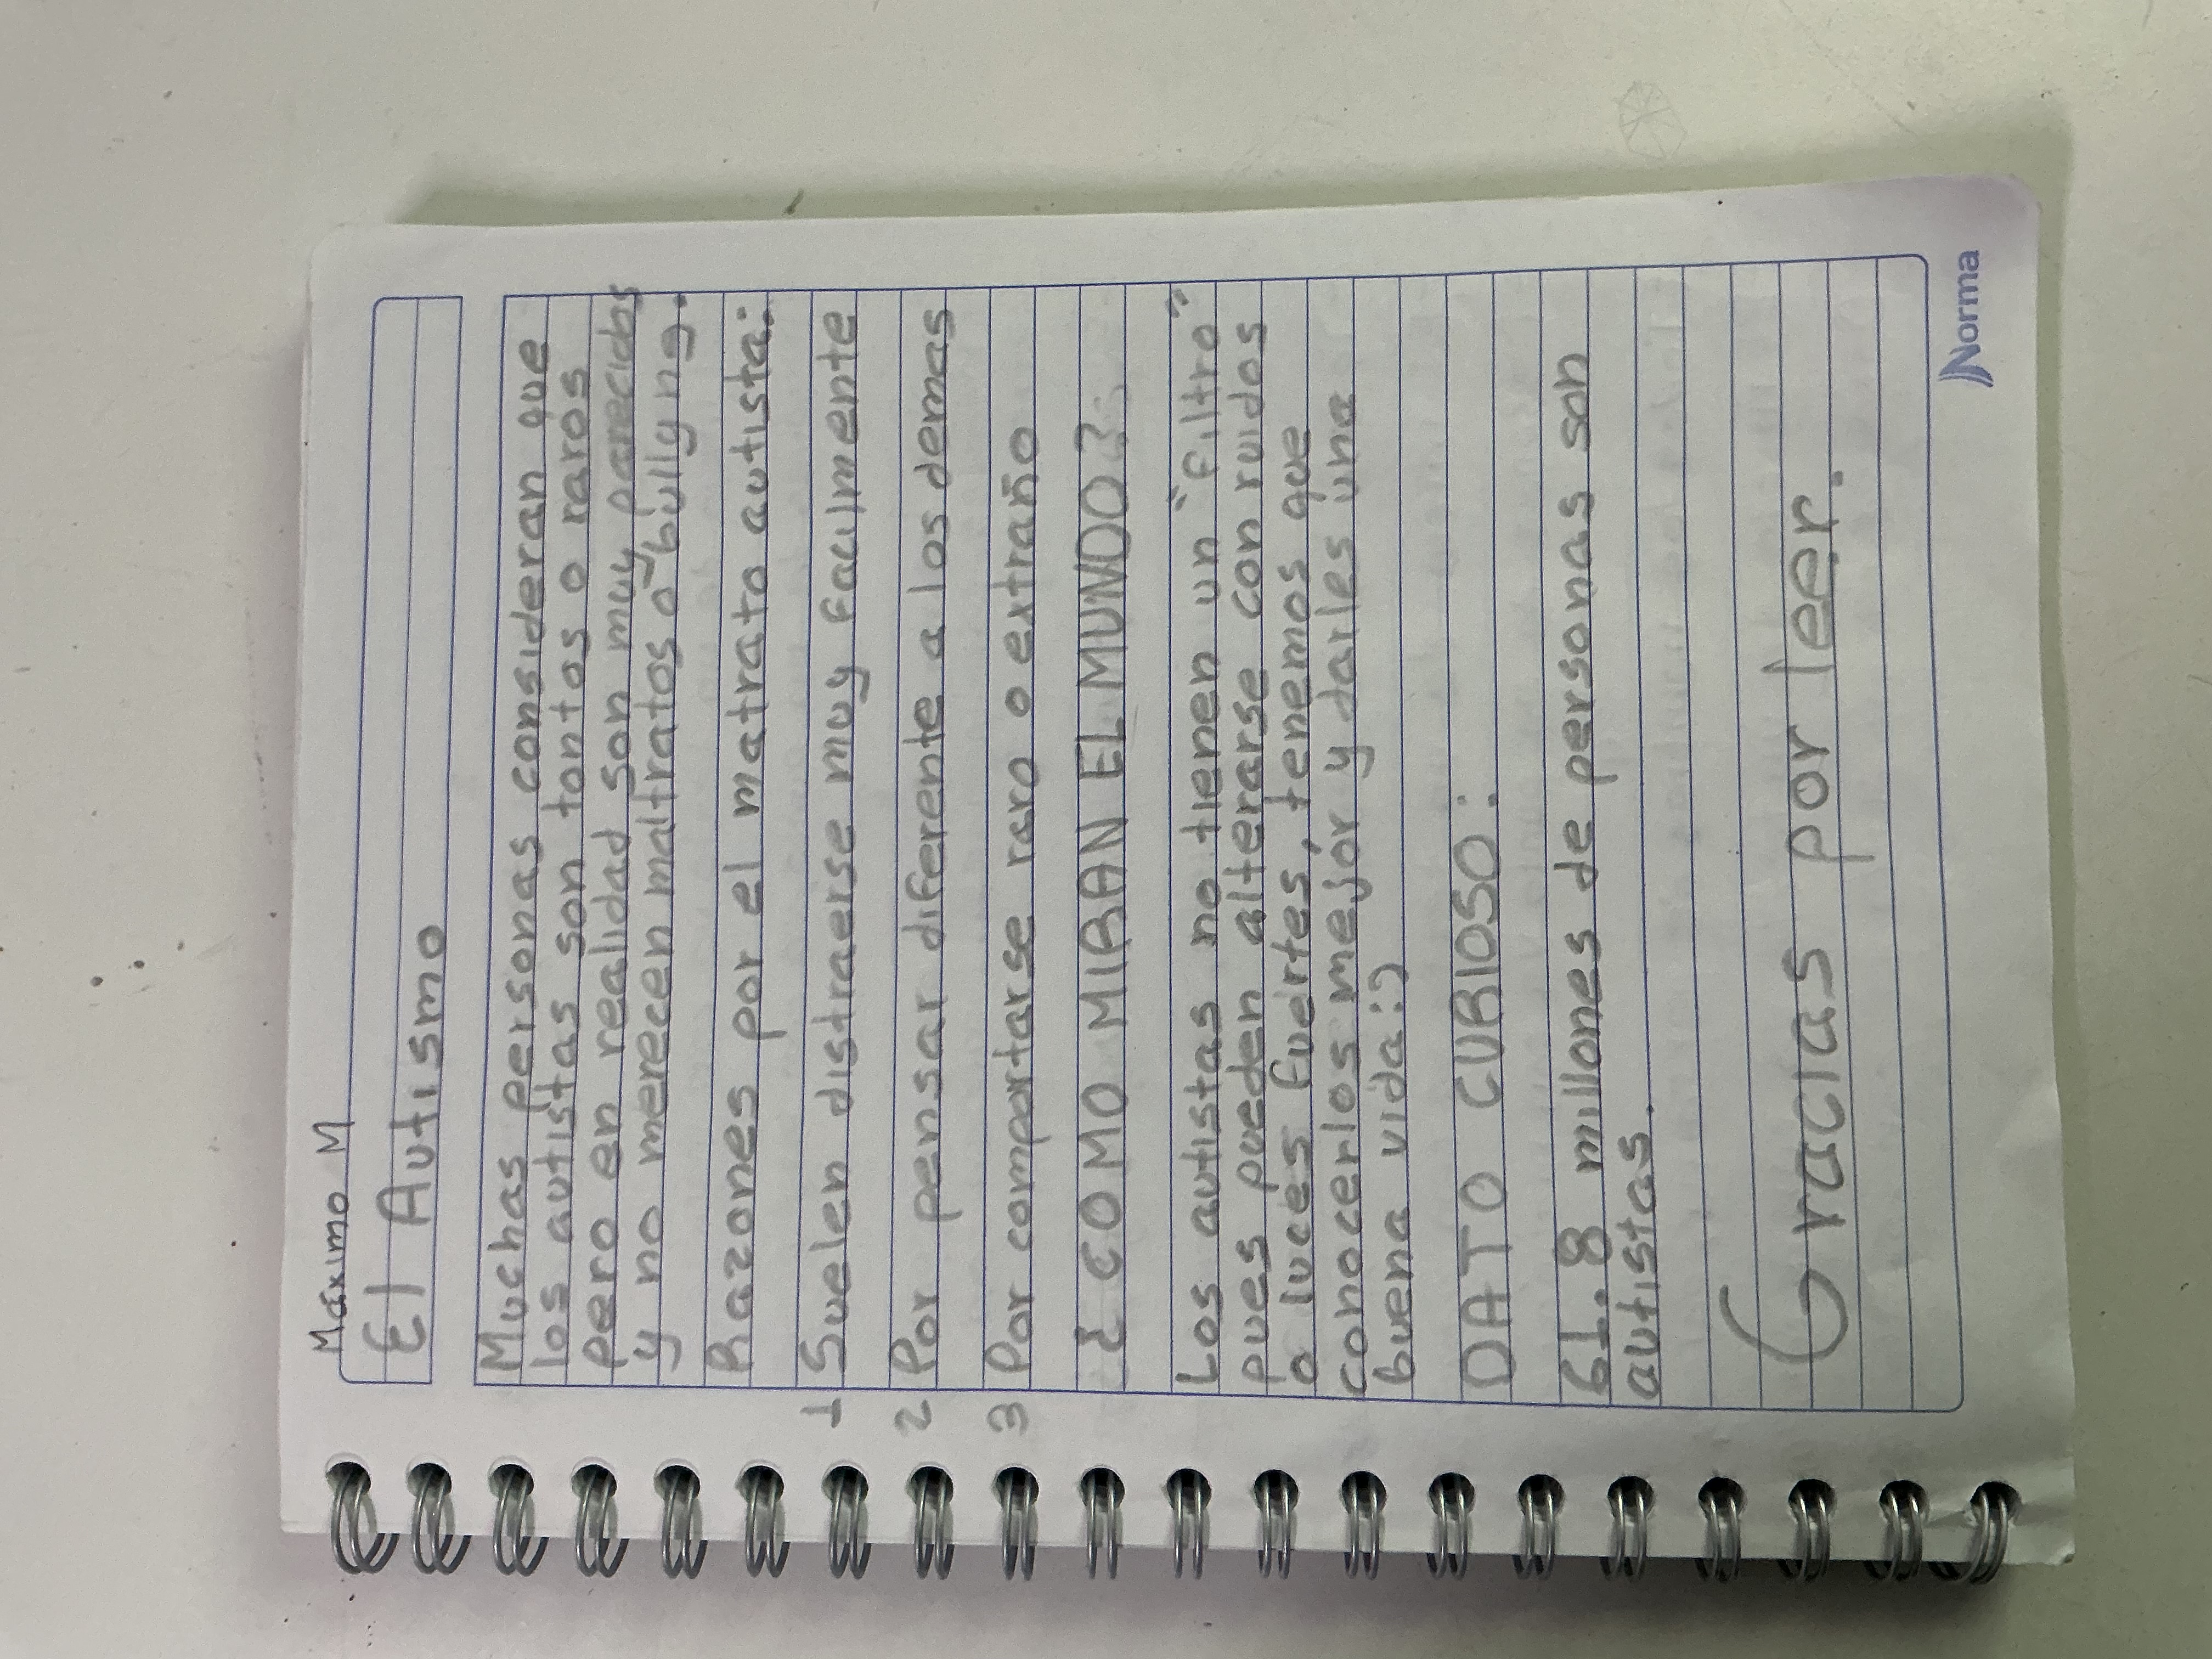 Máximo M
El Autismo
Muchas personas consideran que
los autistas son tontos o raros
pero en realidad son muy parecidos
y no merecen maltratos o bullyng.
Razones por el matrato autista:
1 Suelen distraerse muy facilmente
2 Por pensar diferente a los demas
3 Por comportarse raro o extraño
¿COMO MIRAN EL MUNDO?
Los autistas no tienen un "filtro"
pues pueden alterarse con ruidos
o luces fuertes, tenemos que
conocerlos mejor y darles una
buena vida:)
DATO CURIOSO:
61.8 millones de personas son
autistas.
Gracias por leer.
Norma